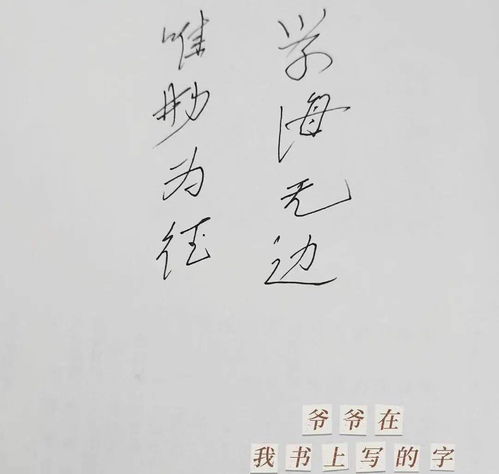 学海无边
唯勤为径
爷爷在
我书上写的字